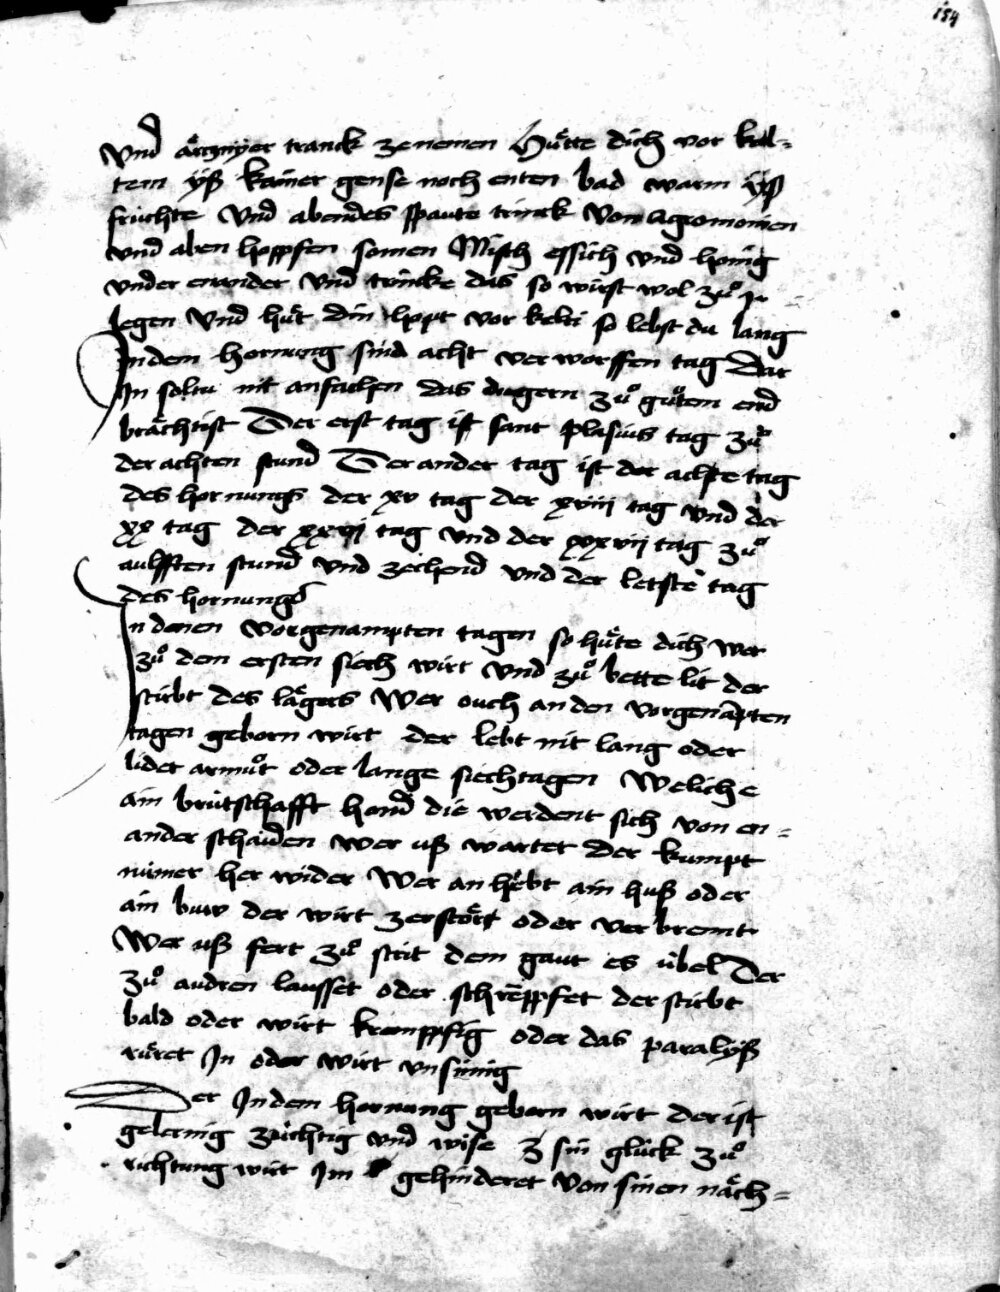 154
vnd ärcznyer tranck ze nemen Hu̍tte dich vor kal=
tem yß kainer gense noch enten bad warm yß
fru̍chte Vnd abendes spaute trinck Von agromonien
vnd aben hoppfen somen Misch essich vnd honig
vnder enander Vnd trincke das so wirst wol zuͦ
legen Vnd hu̍t din hopt vor kelti so lebst du lang
In dem hornung sind acht verworffen tag Dar
In soltu nit anfachen das du gern zuͦ guͦtem end
brächtist Der erst tag ist sant plasius tag zuͦ
der achten stund Der ander tag ist der achste tag
des hornungs der xv tag der xviii tag vnd der
xx tag der xxvi tag vnd der xxvii tag zuͦ
aulfften stund Vnd zechend vnd der letste tag
des hornungs
In denen vorgenampten tagen so hu̍te dich wer
zuͦ dem ersten siech wirt Vnd zuͦ bette lit der
stirbt des lägers Wer ouch an den vorgenāpten
tagen geborn wirt der lebt nit lang oder
lidet armuͦt oder lange siechtagen Weliche
ain bru̍tschafft hond die werdent sich von en=
ander schaiden Wer uß wartet Der kumpt
nimer her wider Wer an hebt ain huß oder
ain buw der wirt zerstört oder verbrent
Wer uß fert zuͦ strit dem gaut es u̍bel Der
zuͦ audren lausset oder schreppfet der stirbt
bald oder wirt krampffig oder das paralyß
ru̍ret In oder wirt vnsinnig
Der In dem hornung geborn wirt der ist
gelernig zu̍chtig vnd wise sin glu̍ck zuͦ
richtung wirt Im gehinderet Von sinen näch=